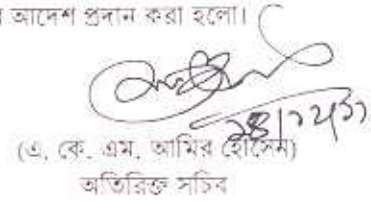 আদেশ প্রদান করা হলো।
(এ, কে, এম, আমির হোসেন)
অতিরিক্ত সচিব